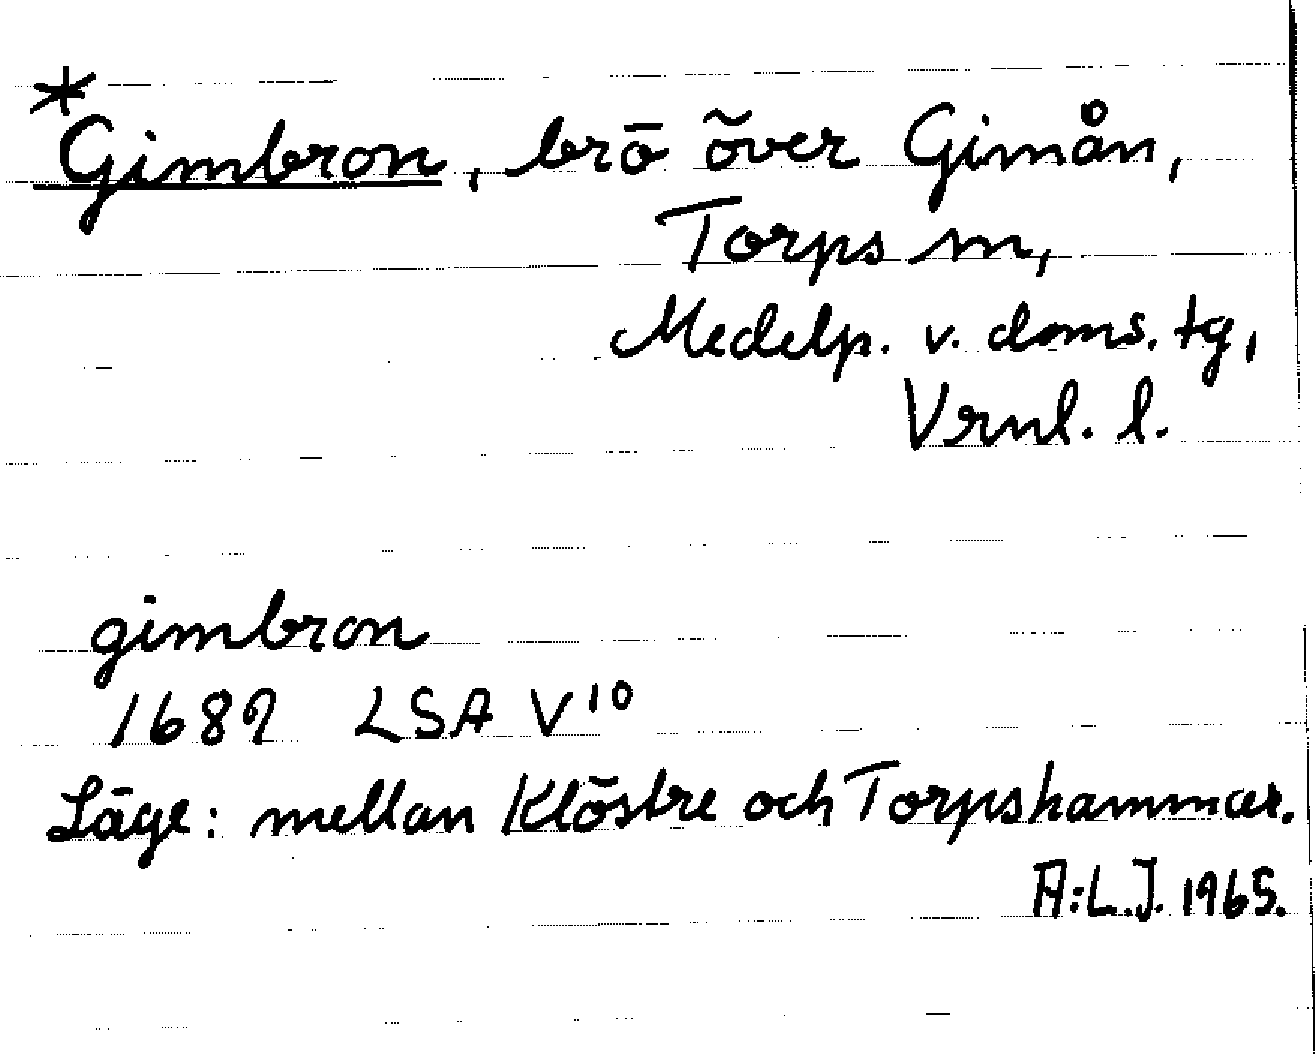 *Gimbron, bro över Gimån,
Torps sn,
Medelp. v. doms. tg,
Vrnl. l.
gimbron
1689 LSA V¹⁰
Läge: mellan Klöstre och Torpshammar.
A:L.J. 1965.